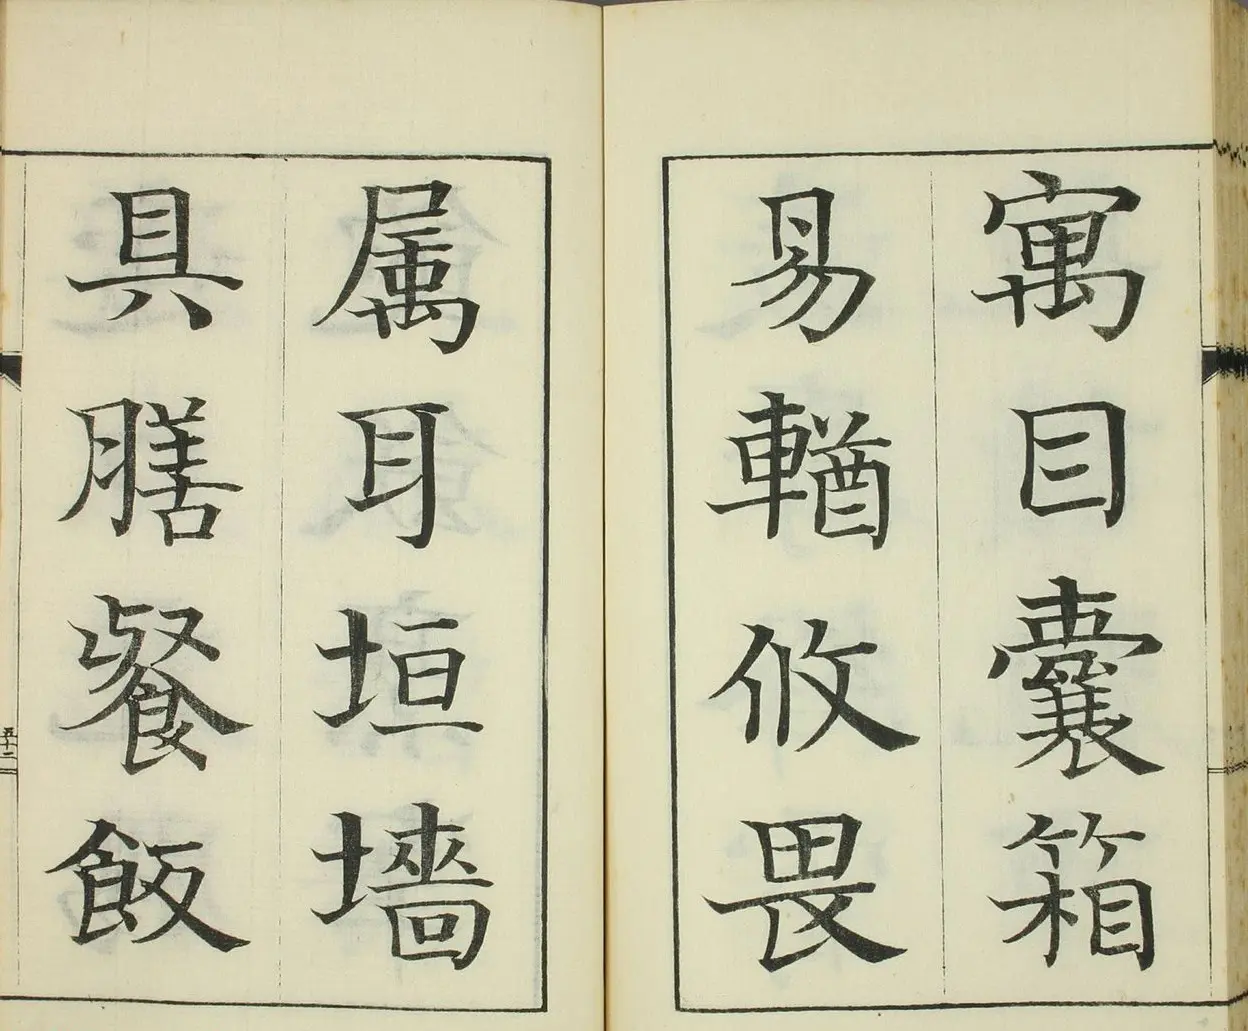 寓目囊箱
易輶攸畏
属耳垣墻
具膳飡飯
五十二